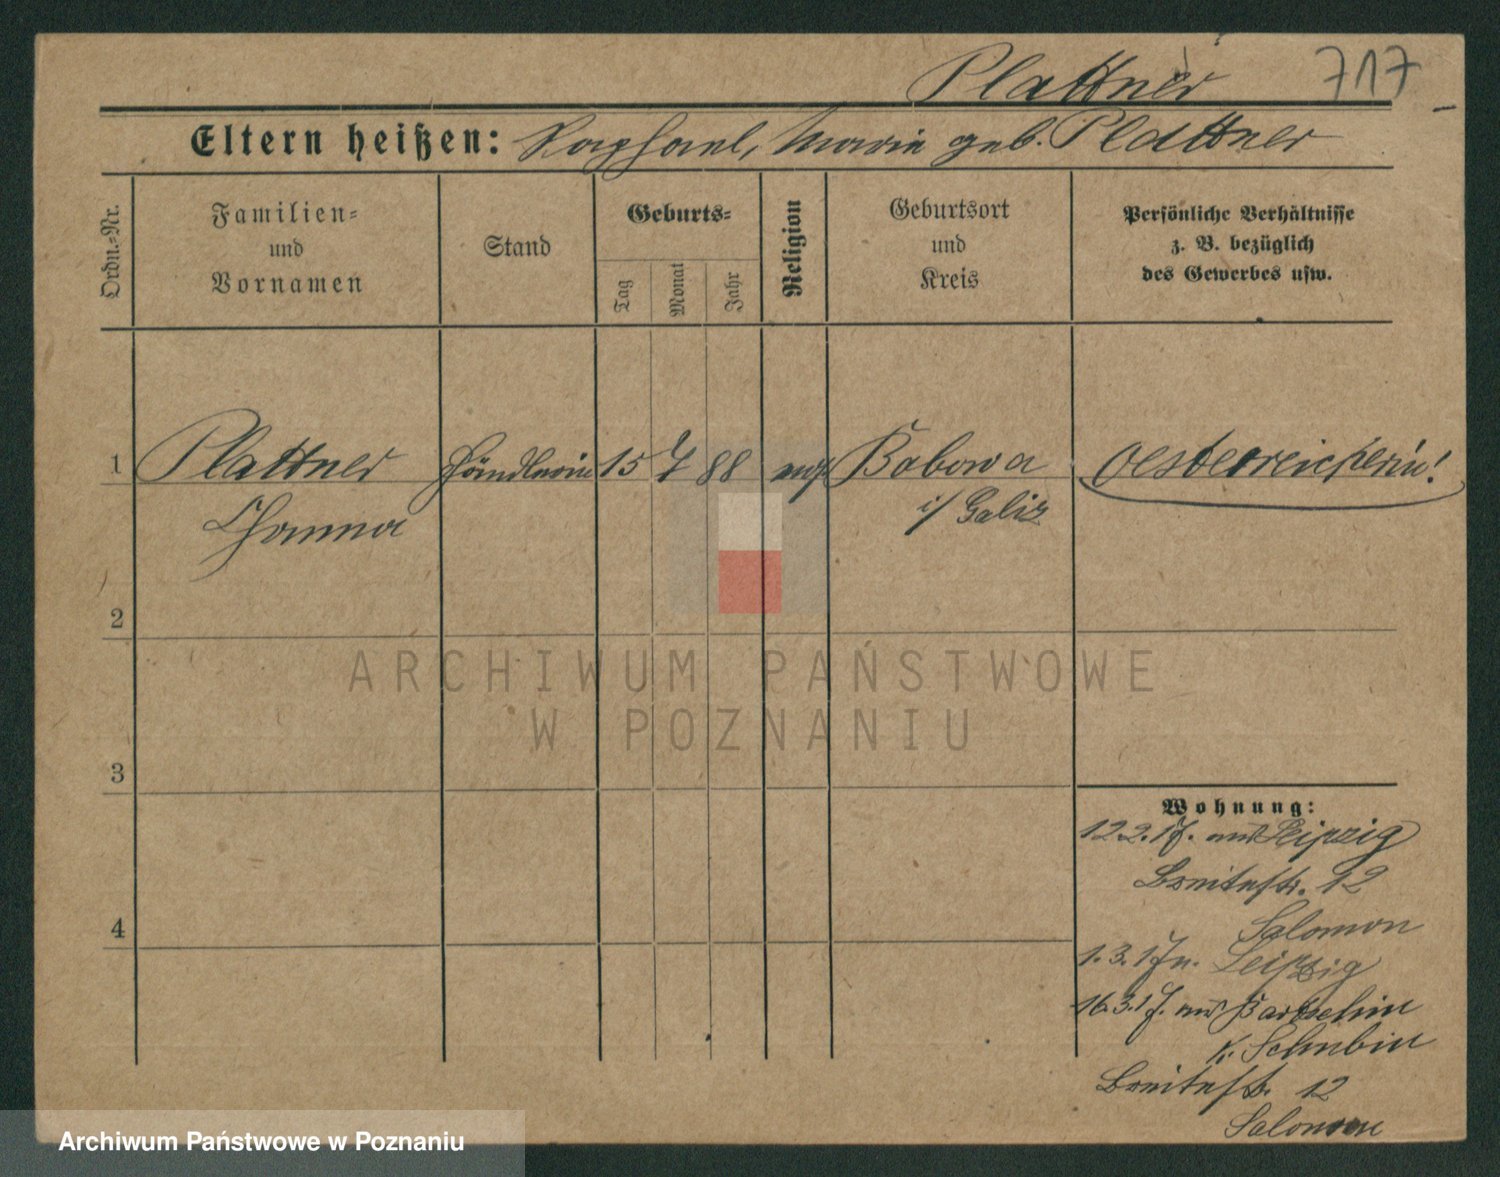 Plattner 717
Eltern heißen: Raphael, Marie geb. Plattner
Ordn.-Nr.
Familien-
und
Vornamen
Stand
Geburts-
Tag
Monat
Jahr
Religion
Geburtsort
und
Kreis
Persönliche Verhältnisse
z. B. bezüglich
des Gewerbes usw.
1 Plattner Händlerin 15 7 88 Bobowa Oesterreicherin!
Channa i/ Galiz
2
3
4
Wohnung:
12.2.17. aus Leipzig
Breitestr. 12
Salomon
1.3.17 n. Leipzig
16.3.17. aus Bartschin
K. Schubin
Breitestr. 12
Salomon
ARCHIWUM PAŃSTWOWE
W POZNANIU
Archiwum Państwowe w Poznaniu